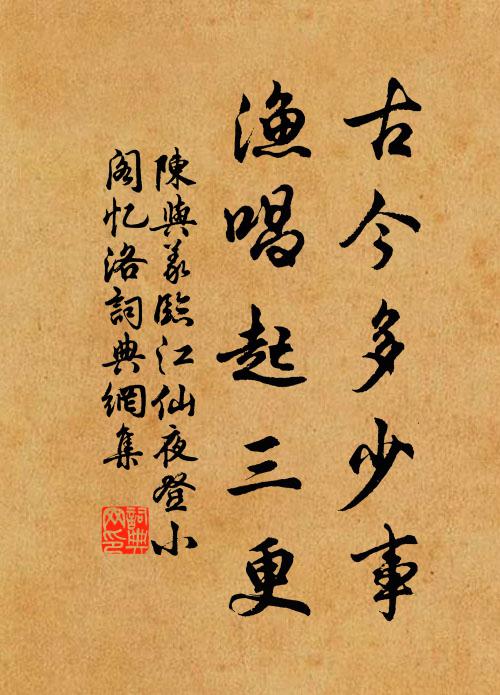 古今多少事
漁唱起三更
陳與義臨江仙夜登小
阁忆洛詞典網集
詞典网印